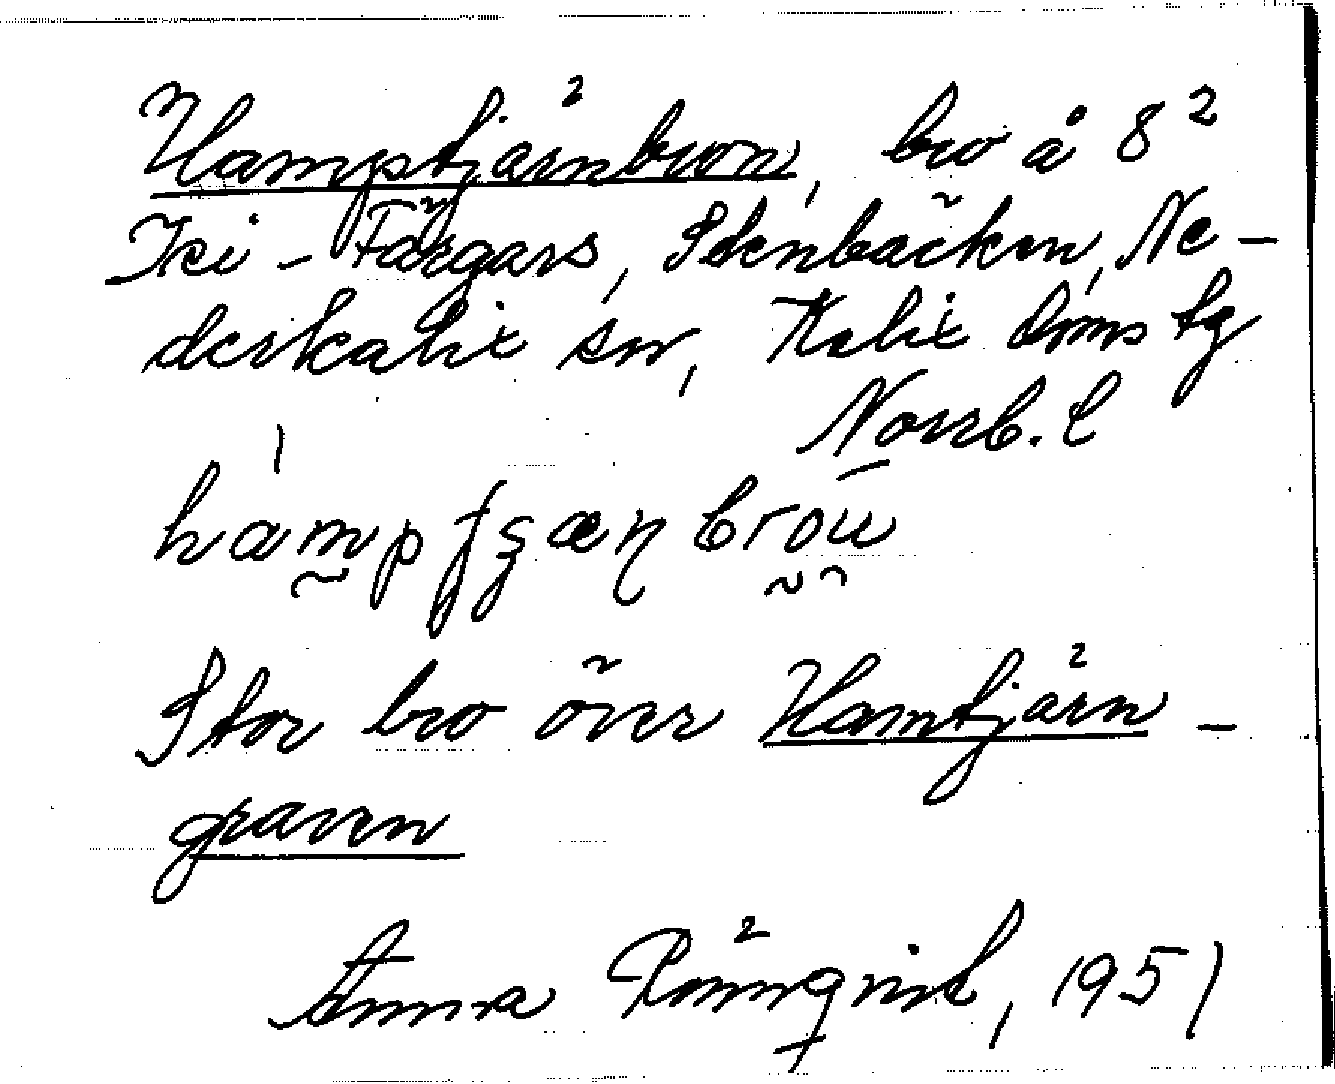 Hamptjärnbron, bro å 8²
Isei - Färgars, Stenbäcken, Ne-
derkalix sn, Kalix doms tg
Norrb. l
hampʃʒæɳbrou
Stor bro över Hamtjärn-
graven
Anna Rönnqvist, 1951